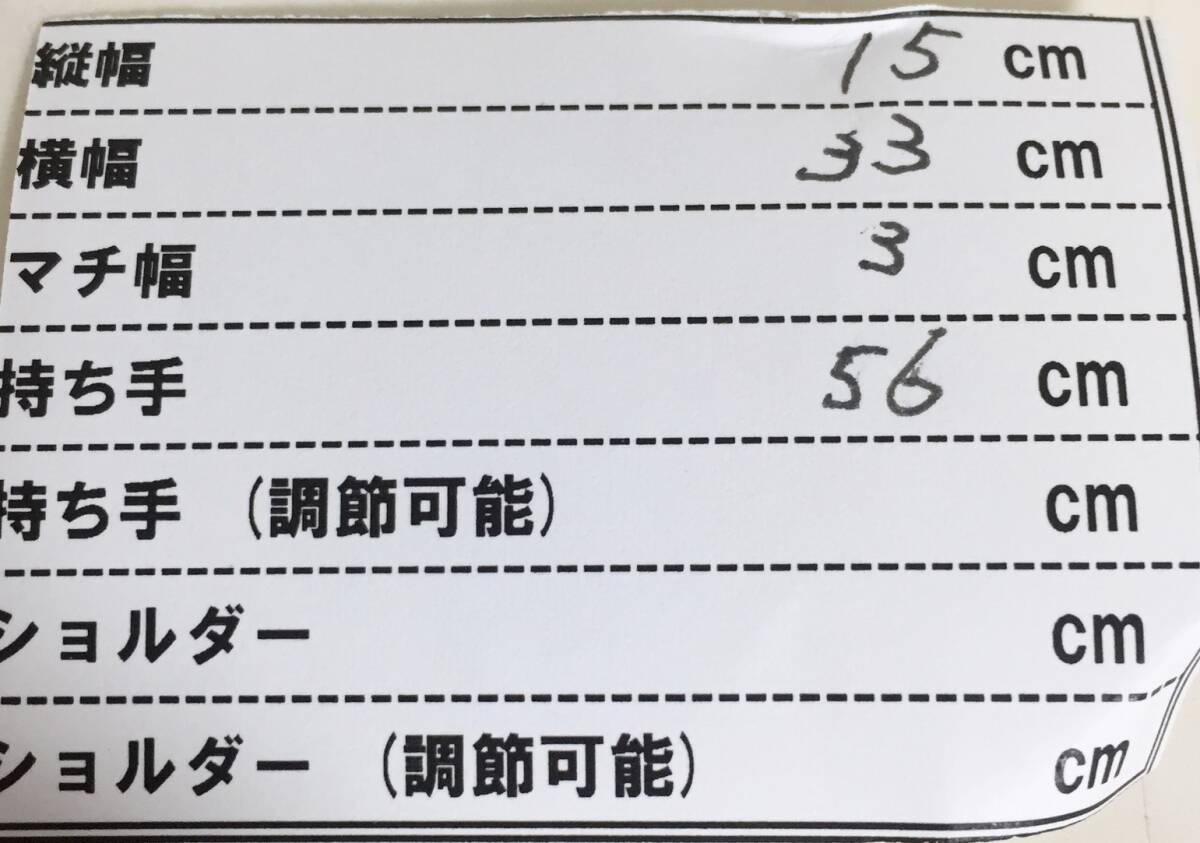 縦幅 15 cm
横幅 33 cm
マチ幅 3 cm
持ち手 56 cm
持ち手 (調節可能) cm
ショルダー cm
ショルダー (調節可能) cm